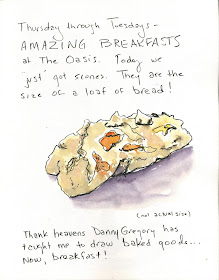 Thursday through Tuesdays -
AMAZING BREAKFASTS
at The Oasis. Today we
"just" got scones. They are the
size of a loaf of bread!
(not actual size)
Thank heavens Danny Gregory has
taught me to draw baked goods...
Now, breakfast!